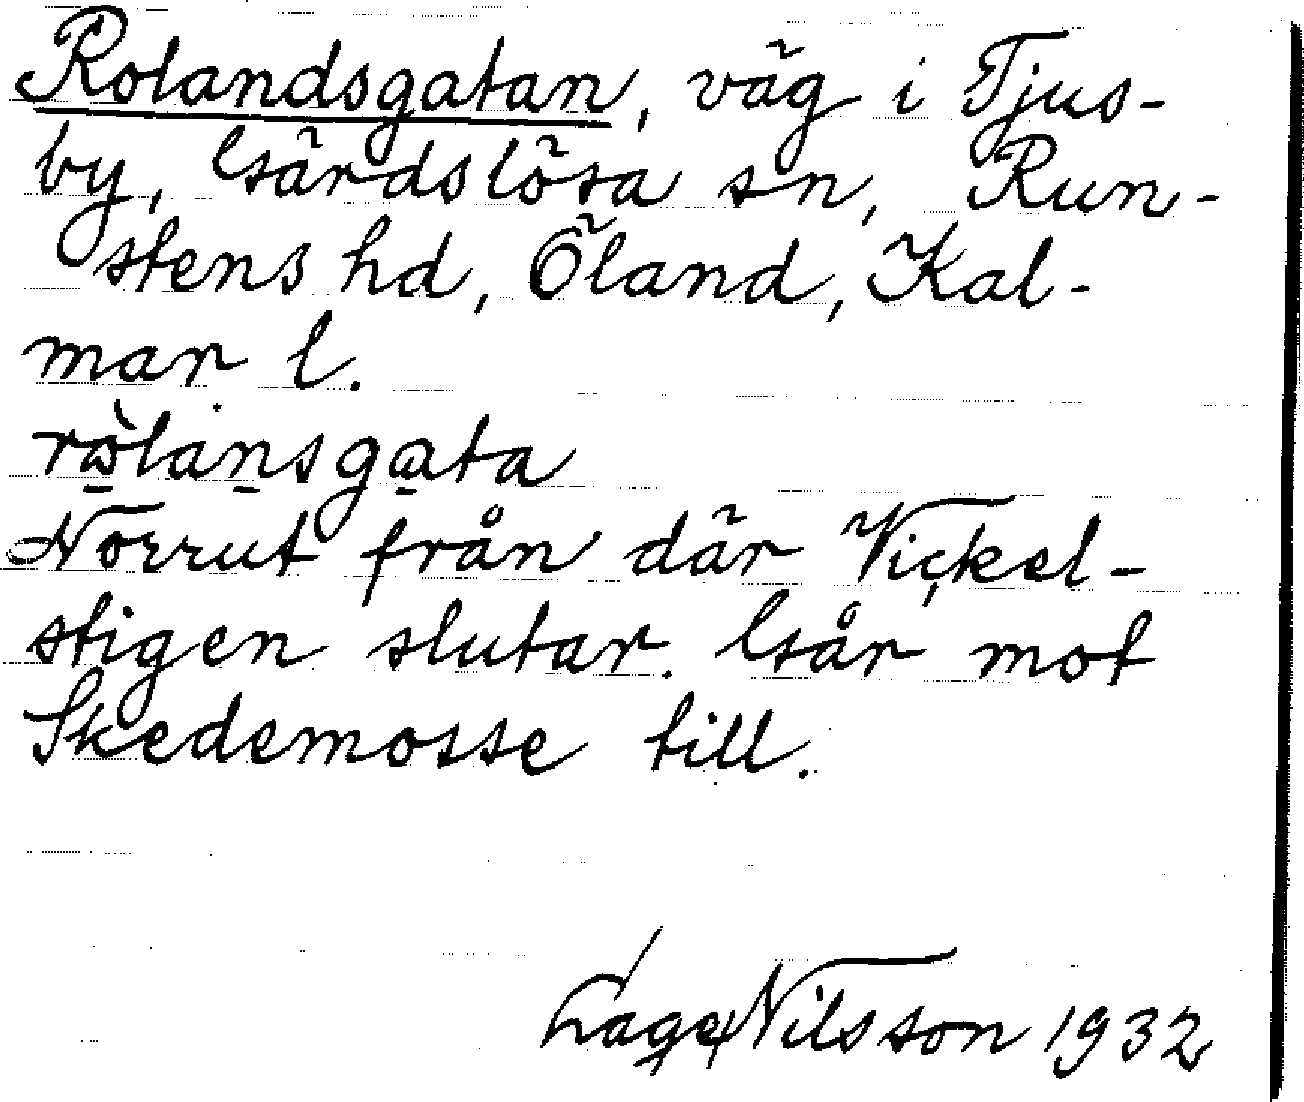 Rolandsgatan, väg i Tjus-
by, Gärdslösa sn, Run-
stens hd, Öland, Kal-
mar l.
rò̱lan̠sga̠ta
Norrut från där Vickel-
stigen slutar. Går mot
Skedemosse till.
Lage Nilsson 1932